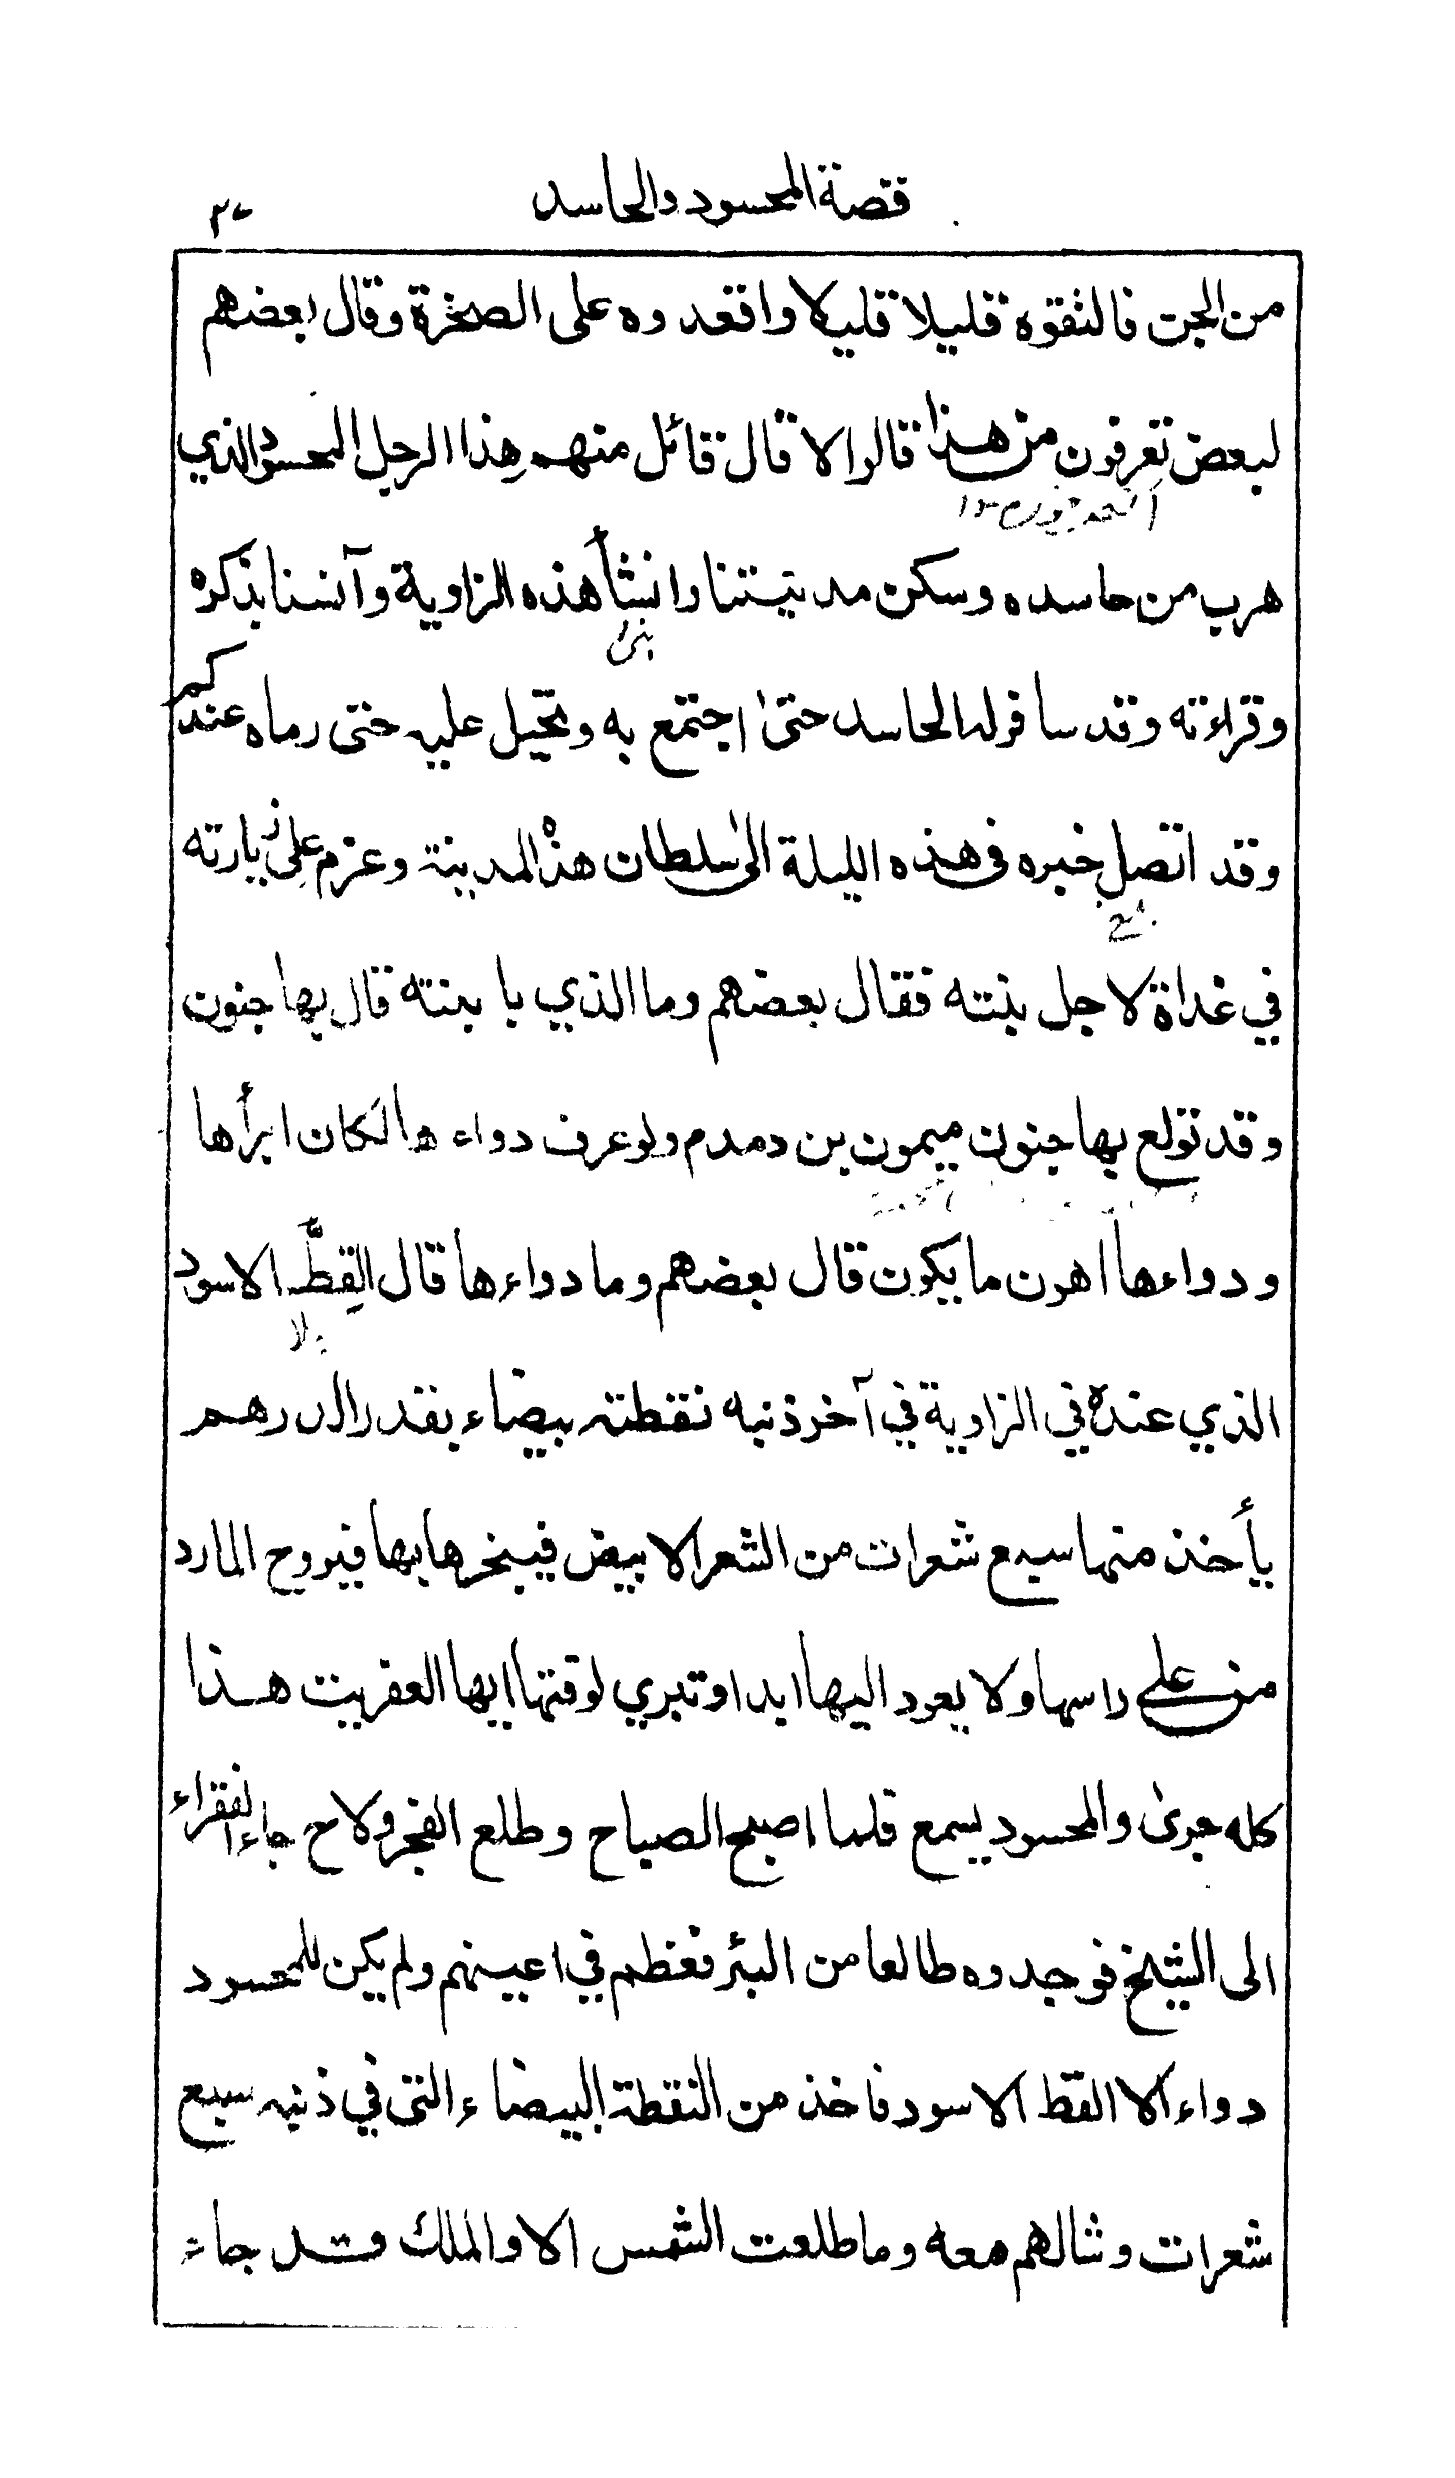 قصة المحسود والحاسد ٢٧
من الجن فالتقوه قليلا قليلا واقعدوه على الصخرة وقال بعضهم
لبعض تعرفون من هذا قالوا لا قال قائل منهم هذا الرجل المحسود الذي
هرب من حاسده وسكن مدينتنا وانشأ هذه الزاوية وآنسنا بذكره
وقراءته وقد سافر له الحاسد حتى اجتمع به وتحيل عليه حتى رماه عندكم
وقد اتصل خبره في هذه الليلة الى سلطان هذه المدينة وعزم على زيارته
في غداة لاجل بنته فقال بعضهم وما الذي بابنته قال بها جنون
وقد تولع بها جنون ميمون بن دمدم ولو عرف دواءها لكان ابرأها
ودواءها اهون ما يكون قال بعضهم وما دواءها قال القط الاسود
الذي عنده في الزاوية في آخر ذنبه نقطته بيضاء بقدر الدرهم
يأخذ منها سبع شعرات من الشعر الابيض فيبخرها بها فيروح المارد
من على راسها ولا يعود اليها ابدا وتبري لوقتها ايها العفريت هذا
كله جرى والمحسود يسمع فلما اصبح الصباح وطلع الفجر ولاح جاء الفقراء
الى الشيخ فوجدوه طالعا من البئر فعظم في اعينهم ولم يكن للمحسود
دواء الا القط الاسود فاخذ من النقطة البيضاء التي في ذنبه سبع
شعرات وشالهم معه وما طلعت الشمس الا والملك قد جاء